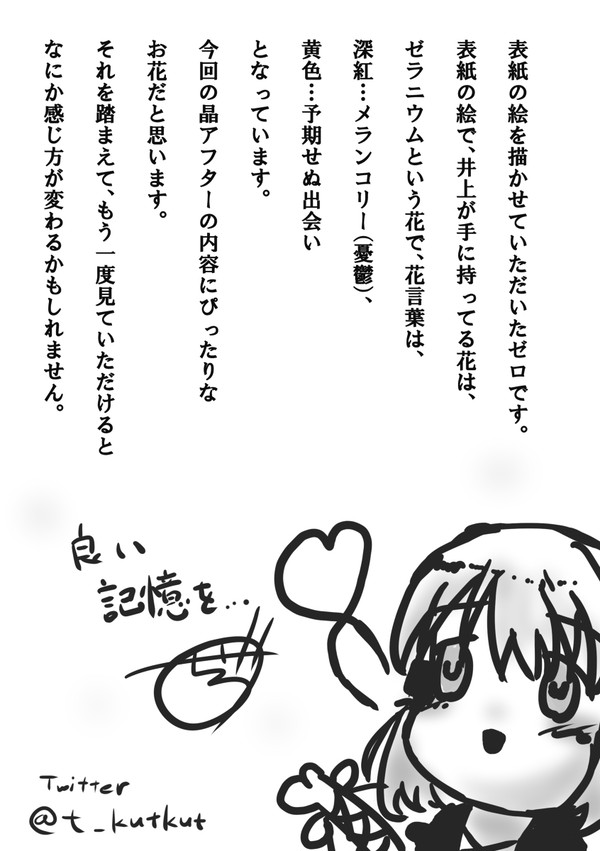 表紙の絵を描かせていただいたゼロです。
表紙の絵で、井上が手に持ってる花は、
ゼラニウムという花で、花言葉は、
深紅…メランコリー(憂鬱)、
黄色…予期せぬ出会い
となっています。
今回の晶アフターの内容にぴったりな
お花だと思います。
それを踏まえて、もう一度見ていただけると
なにか感じ方が変わるかもしれません。
良い
記憶を…
Twitter
@t_kutkut